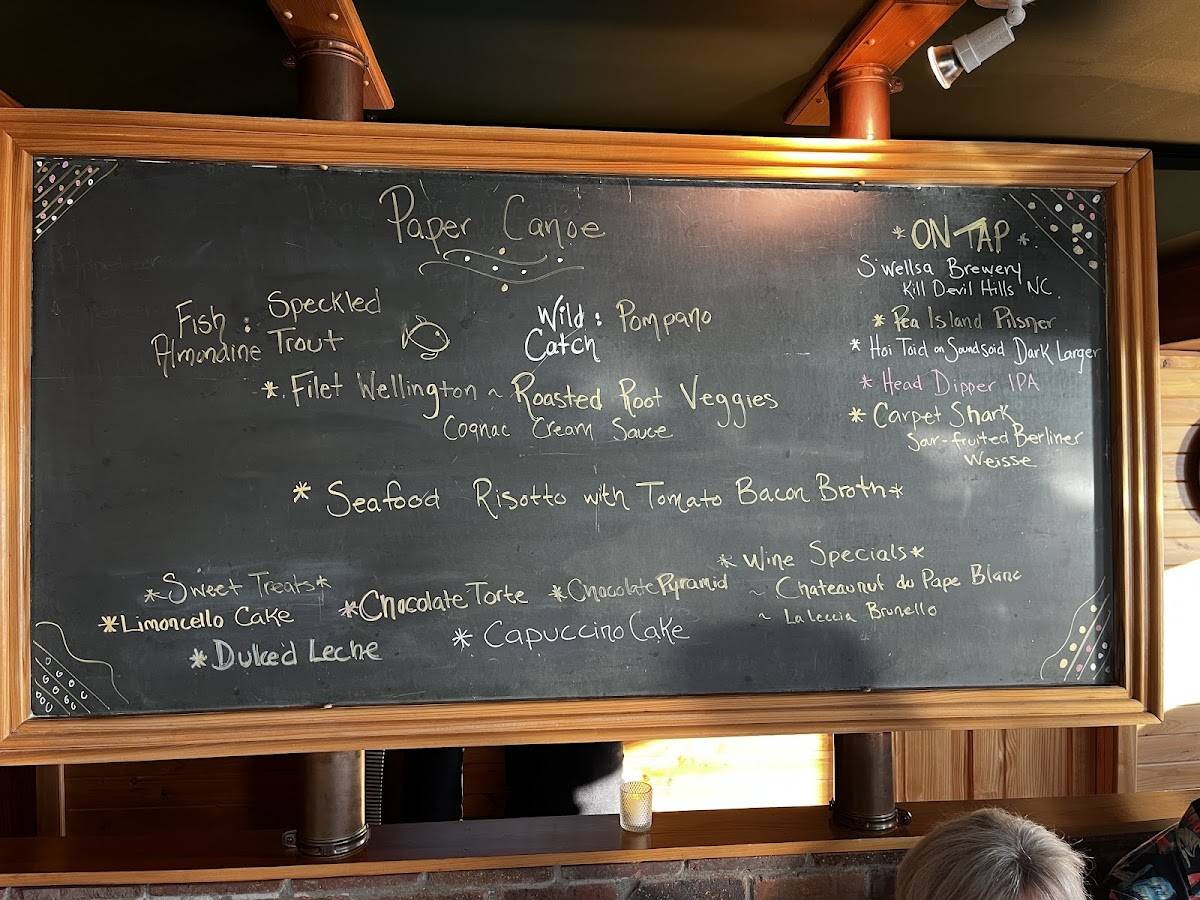 Paper Canoe
Fish Almondine : Speckled Trout
Wild Catch : Pompano
* Filet Wellington ~ Roasted Root Veggies
Cognac Cream Sauce
* Seafood Risotto with Tomato Bacon Broth *
* Sweet Treats *
* Limoncello Cake * Chocolate Torte * Chocolate Pyramid
* Dulced Leche * Capuccino Cake
* ON TAP *
S'wellsa Brewery
Kill Devil Hills NC.
* Pea Island Pilsner
* Hoi Toid on Soundsoid Dark Larger
* Head Dipper IPA
* Carpet Shark
Sour-fruited Berliner
Weisse
* Wine Specials *
~ Chateaunuf du Pape Blanc
~ La Leccia Brunello